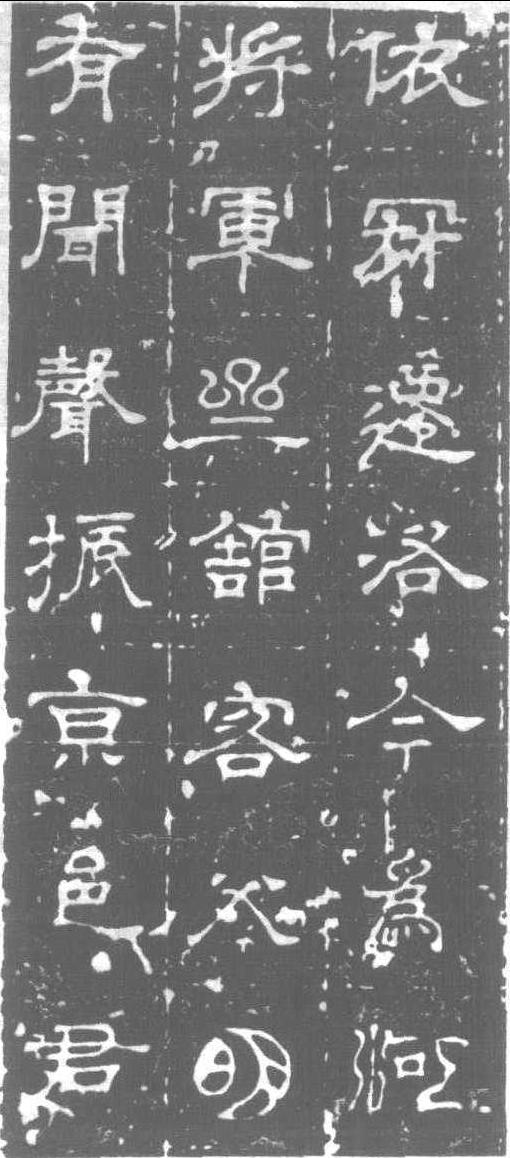 依遷洛今為河
將軍齊館客父明
有聞聲振京邑君